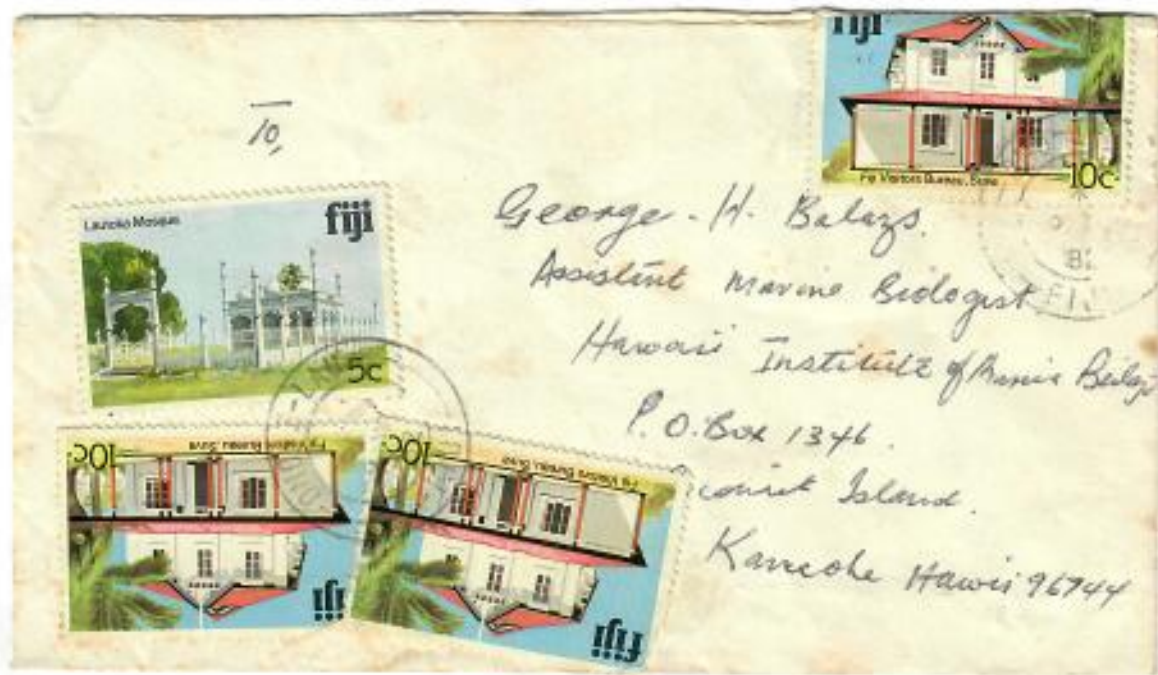 fiji
Fiji Visitors Bureau, Suva
10c
10,
Lautoka Mosque
fiji
5c
George. H. Balazs.
Assistent Marine Biologist
Hawaii Institute of Marine Biology
P.O. Box 1346.
Island.
Kaneohe Hawii 96744
82
FIJI
10c
Fiji Visitors Bureau, Suva
fiji
10c
Fiji Visitors Bureau, Suva
fiji